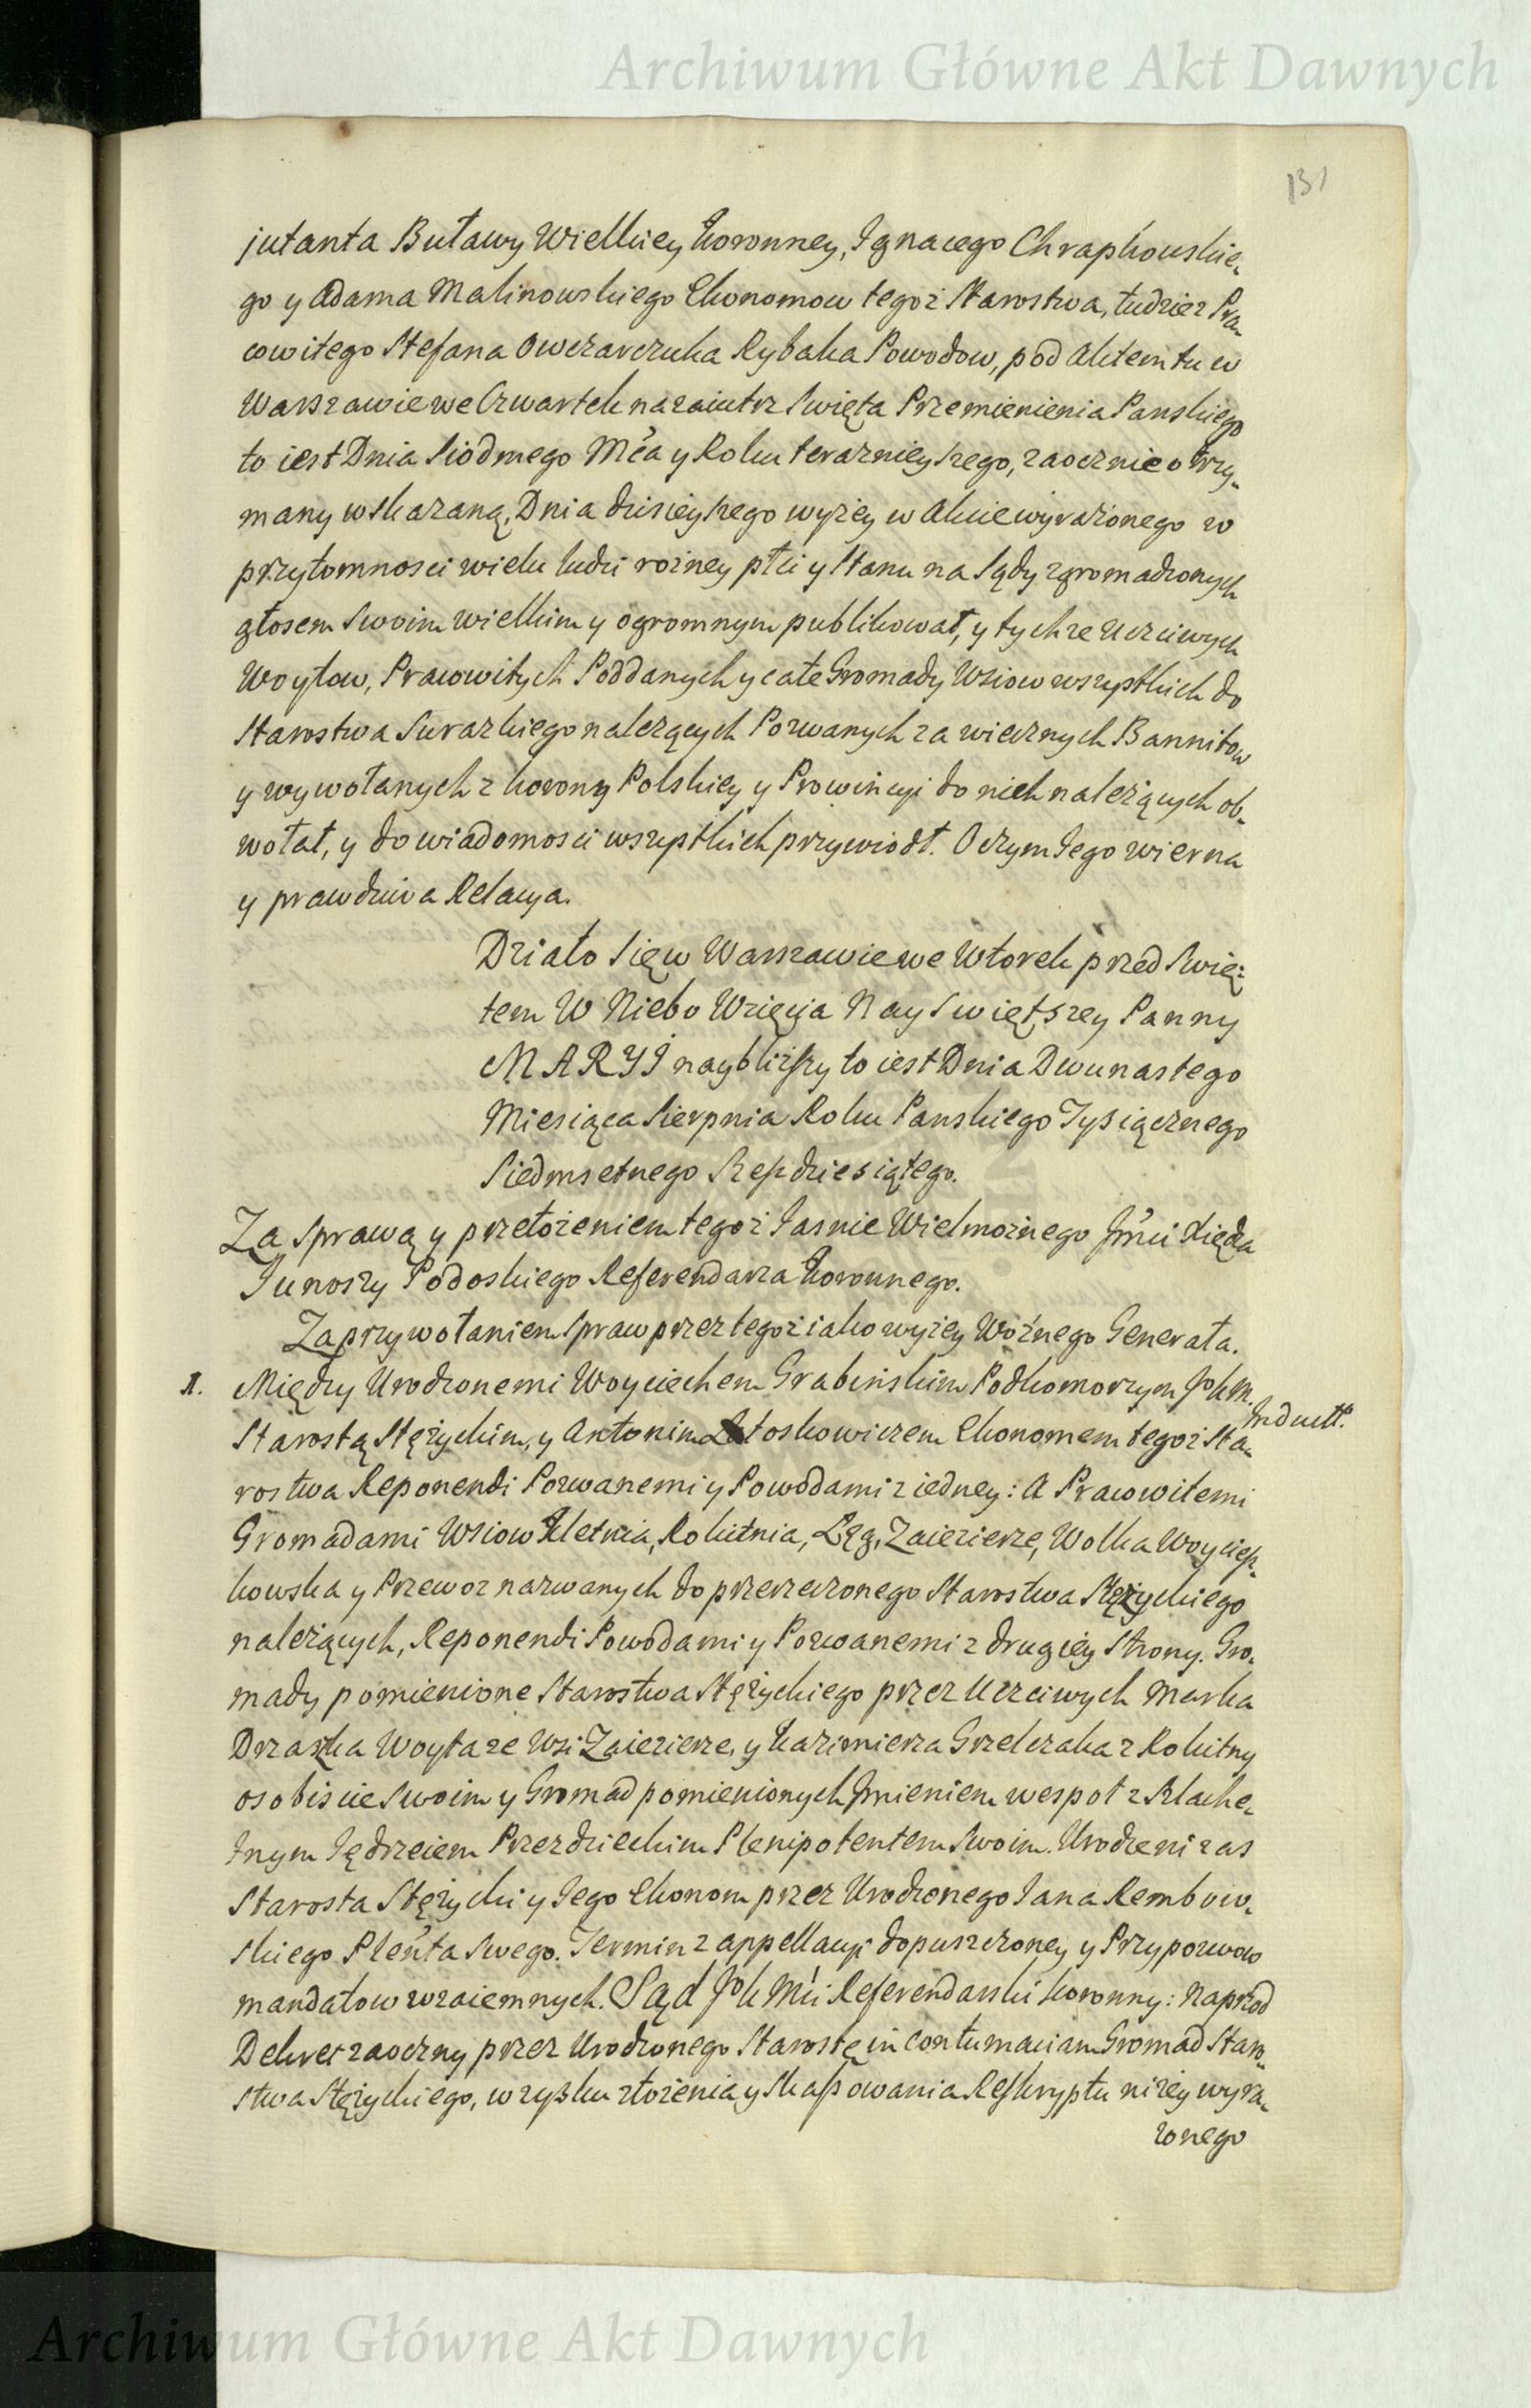 Archiwum Główne Akt Dawnych
131
jutanta Buławy Wielkiey Koronney, Ignacego Chrapkowskie-
go y Adama Malinowskiego Ekonomow tegoż Starostwa, tudziez Pra-
cowitego Stefana Owczarczuka Rybaka Powodow, pod Aktem tu w
Warszawie we Czwartek nazaiutrz Swięta Przemienienia Panskiego
to iest Dnia Siodmego Mca y Roku teraznieyszego, zaocznie otrzy-
many wskazaną, Dnia dzisieyszego wyżey w Akcie wyrażonego w
przytomnosci wielu ludzi rożney płci y Stanu na Sądy zgromadzonych
głosem Swoim wielkim y ogromnym publikował, y tychze Uczciwych
Woytow, Pracowitych Poddanych y całe Gromady Wsiow wszystkich do
Starostwa Surazkiego należących Pozwanych za wiecznych Bannitow
y wywołanych z Korony Polskiey y Prowincyi do nich należących ob-
wołał, y do wiadomosci wszystkich przywiodł. O czym Iego wierna
y prawdziwa Relacya.
Działo Się w Warszawie we Wtorek przed Swię-
tem W Niebo Wzięcia Nayswiętszey Panny
MARYI naybliższy to iest Dnia Dwunastego
Miesiąca Sierpnia Roku Panskiego Tysiącznego
Siedmsetnego Szesdziesiątego.
Za Sprawą y przełożeniem tegoż Iasnie Wielmożnego Jmci Xiędza
Iunoszy Podoskiego Referendarza Koronnego.
Za przywołaniem Spraw przez tegoż iako wyżey Woźnego Generała.
1. Między Urodzonemi Woyciechem Grabinskim Podkomorzym JKM.
Indukt.
Starostą Stężyckim, y Antonim Latoskowiczem Ekonomem tegoż Sta-
rostwa Reponendi Pozwanemi y Powodami z iedney: A Pracowitemi
Gromadami Wsiow Kletnia, Rokitnia, Łęg, Zaiezierze, Wolka Woyciesz-
kowska y Przewoz nazwanych do przerzeczonego Starostwa Stężyckiego
należących, Reponendi Powodami y Pozwanemi z drugiey Strony. Gro-
mady pomienione Starostwa Stężyckiego przez Uczciwych Marka
Drzazka Woyta ze Wsi Zaiezierze, y Kazimierza Grzelczaka z Rokitny
osobiscie Swoim y Gromad pomienionych Jmieniem wespoł z Szlache-
tnym Iędrzeiem Przezdzieckim Plenipotentem Swoim. Urodzeni zas
Starosta Stężycki y Iego Ekonom przez Urodzonego Iana Rembow-
skiego Plenta Swego. Termin z appellacyi dopuszczoney y Przypozwow
mandatow wzaiemnych. Sąd JKMci Referendarski Koronny: Naprzod
Dekret zaoczny przez Urodzonego Starostę in contumaciam Gromad Staro-
stwa Stężyckiego, w zysku złożenia y skassowania Reskryptu niżey wyra-
żonego
Archiwum Główne Akt Dawnych